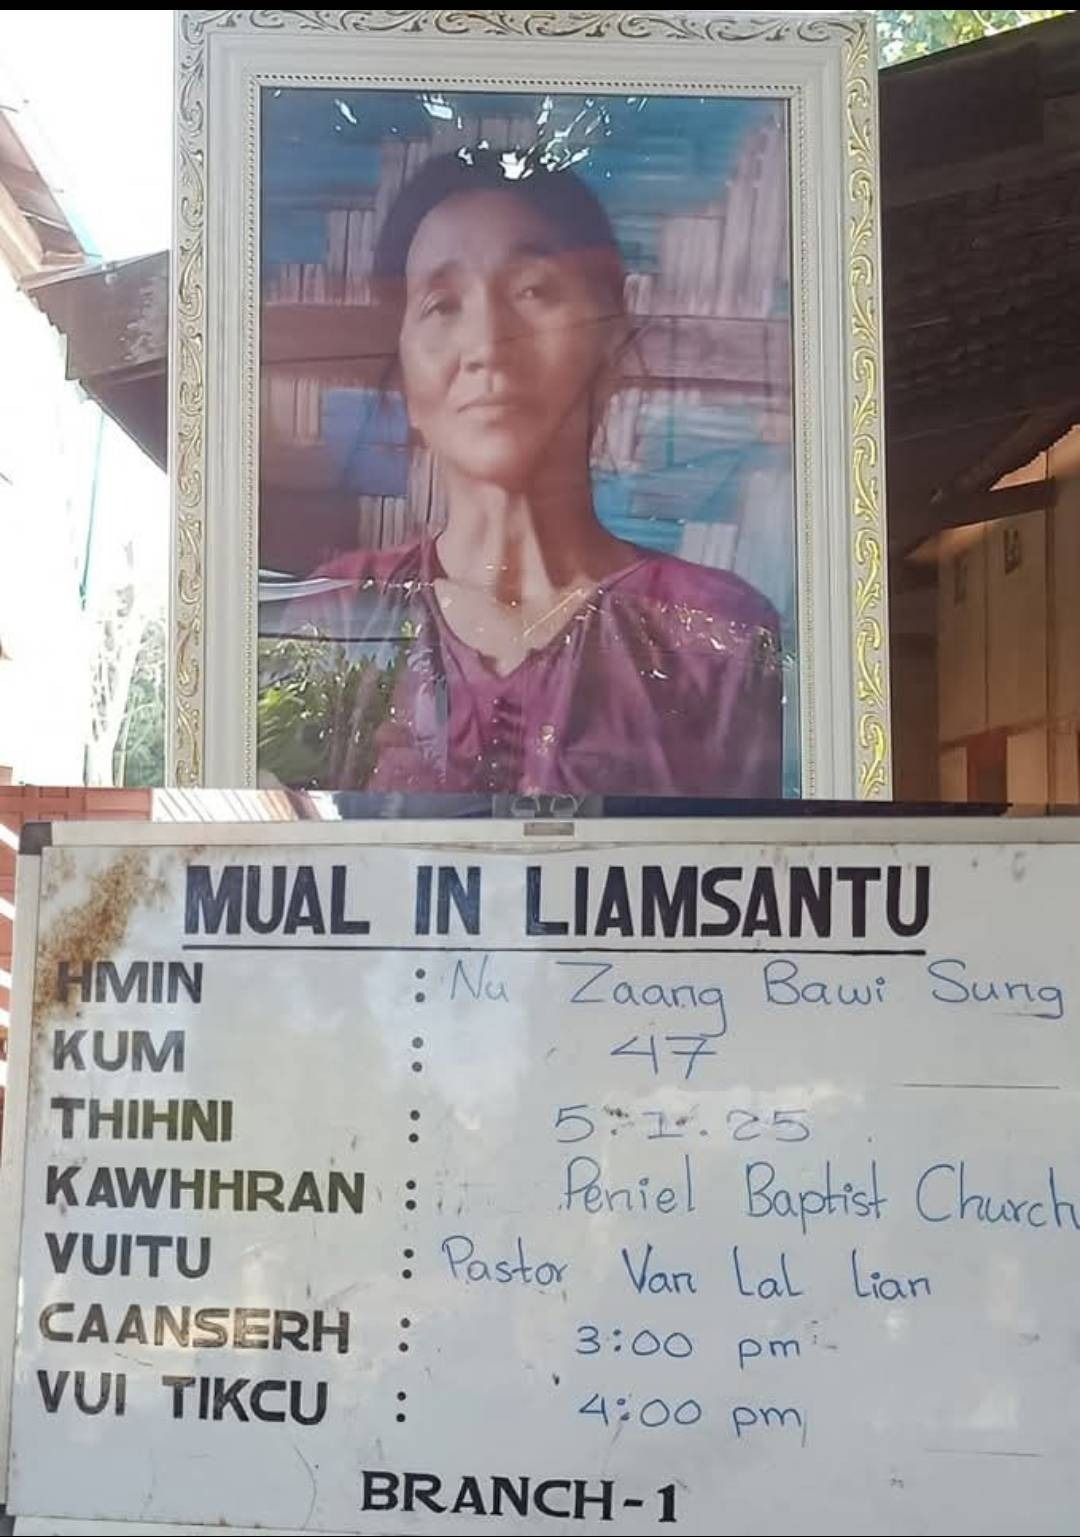 MUAL IN LIAMSANTU
HMIN : Nu Zaang Bawi Sung
KUM : 47
THIHNI : 5.1.25
KAWHHRAN : Peniel Baptist Church
VUITU : Pastor Van Lal Lian
CAANSERH : 3:00 pm
VUI TIKCU : 4:00 pm
BRANCH-1